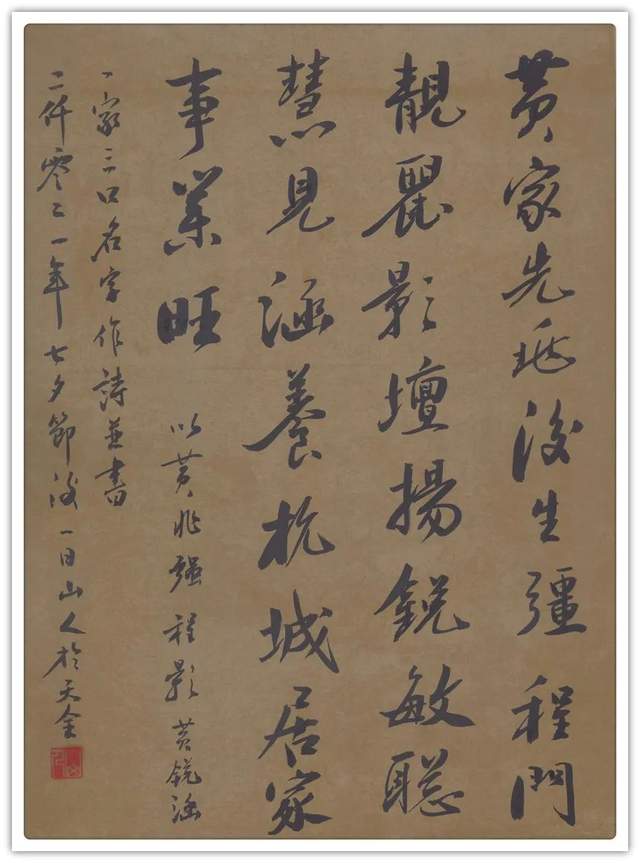 黃家先兆後生彊程門
靚麗影壇揚鋭敏聰
慧見涵養杭城居家
事業旺
以黃兆强程影黃鋭涵
一家三口名字作詩並書
二仟零二一年七夕節後一日山人於天全